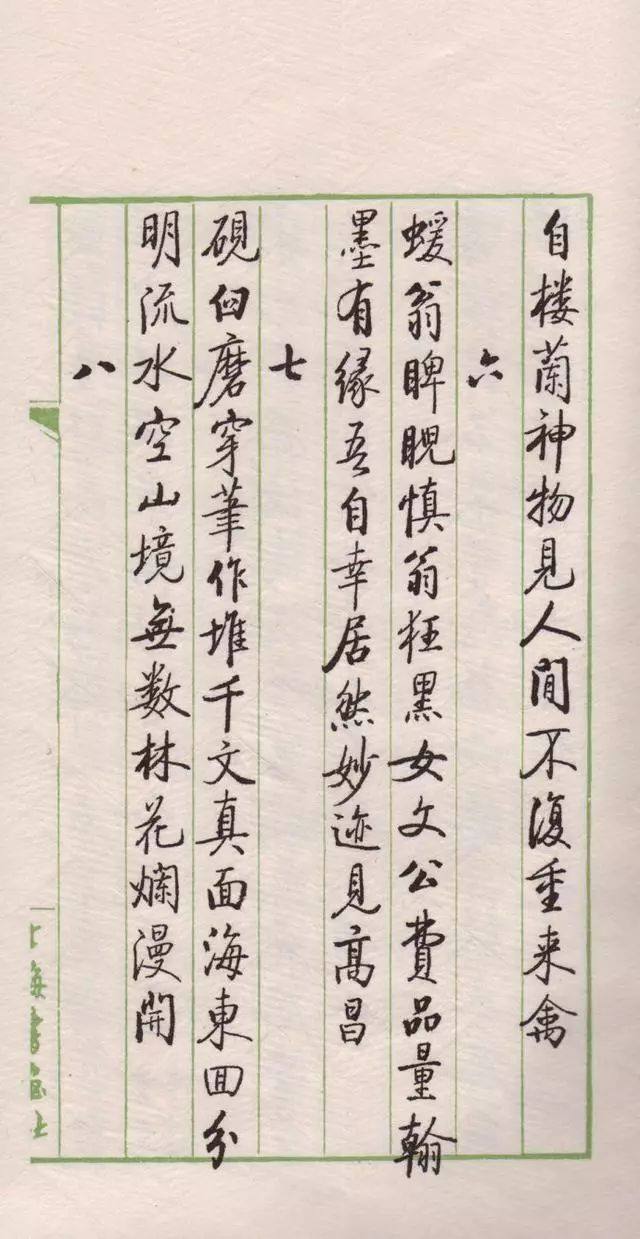 自楼蘭神物見人間不復重来禽
六
蝯翁睥睨慎翁狂黑女文公費品量翰
墨有缘吾自幸居然妙迹見高昌
七
硯臼磨穿筆作堆千文真面海東回分
明流水空山境無数林花爛漫開
八
上海書画社